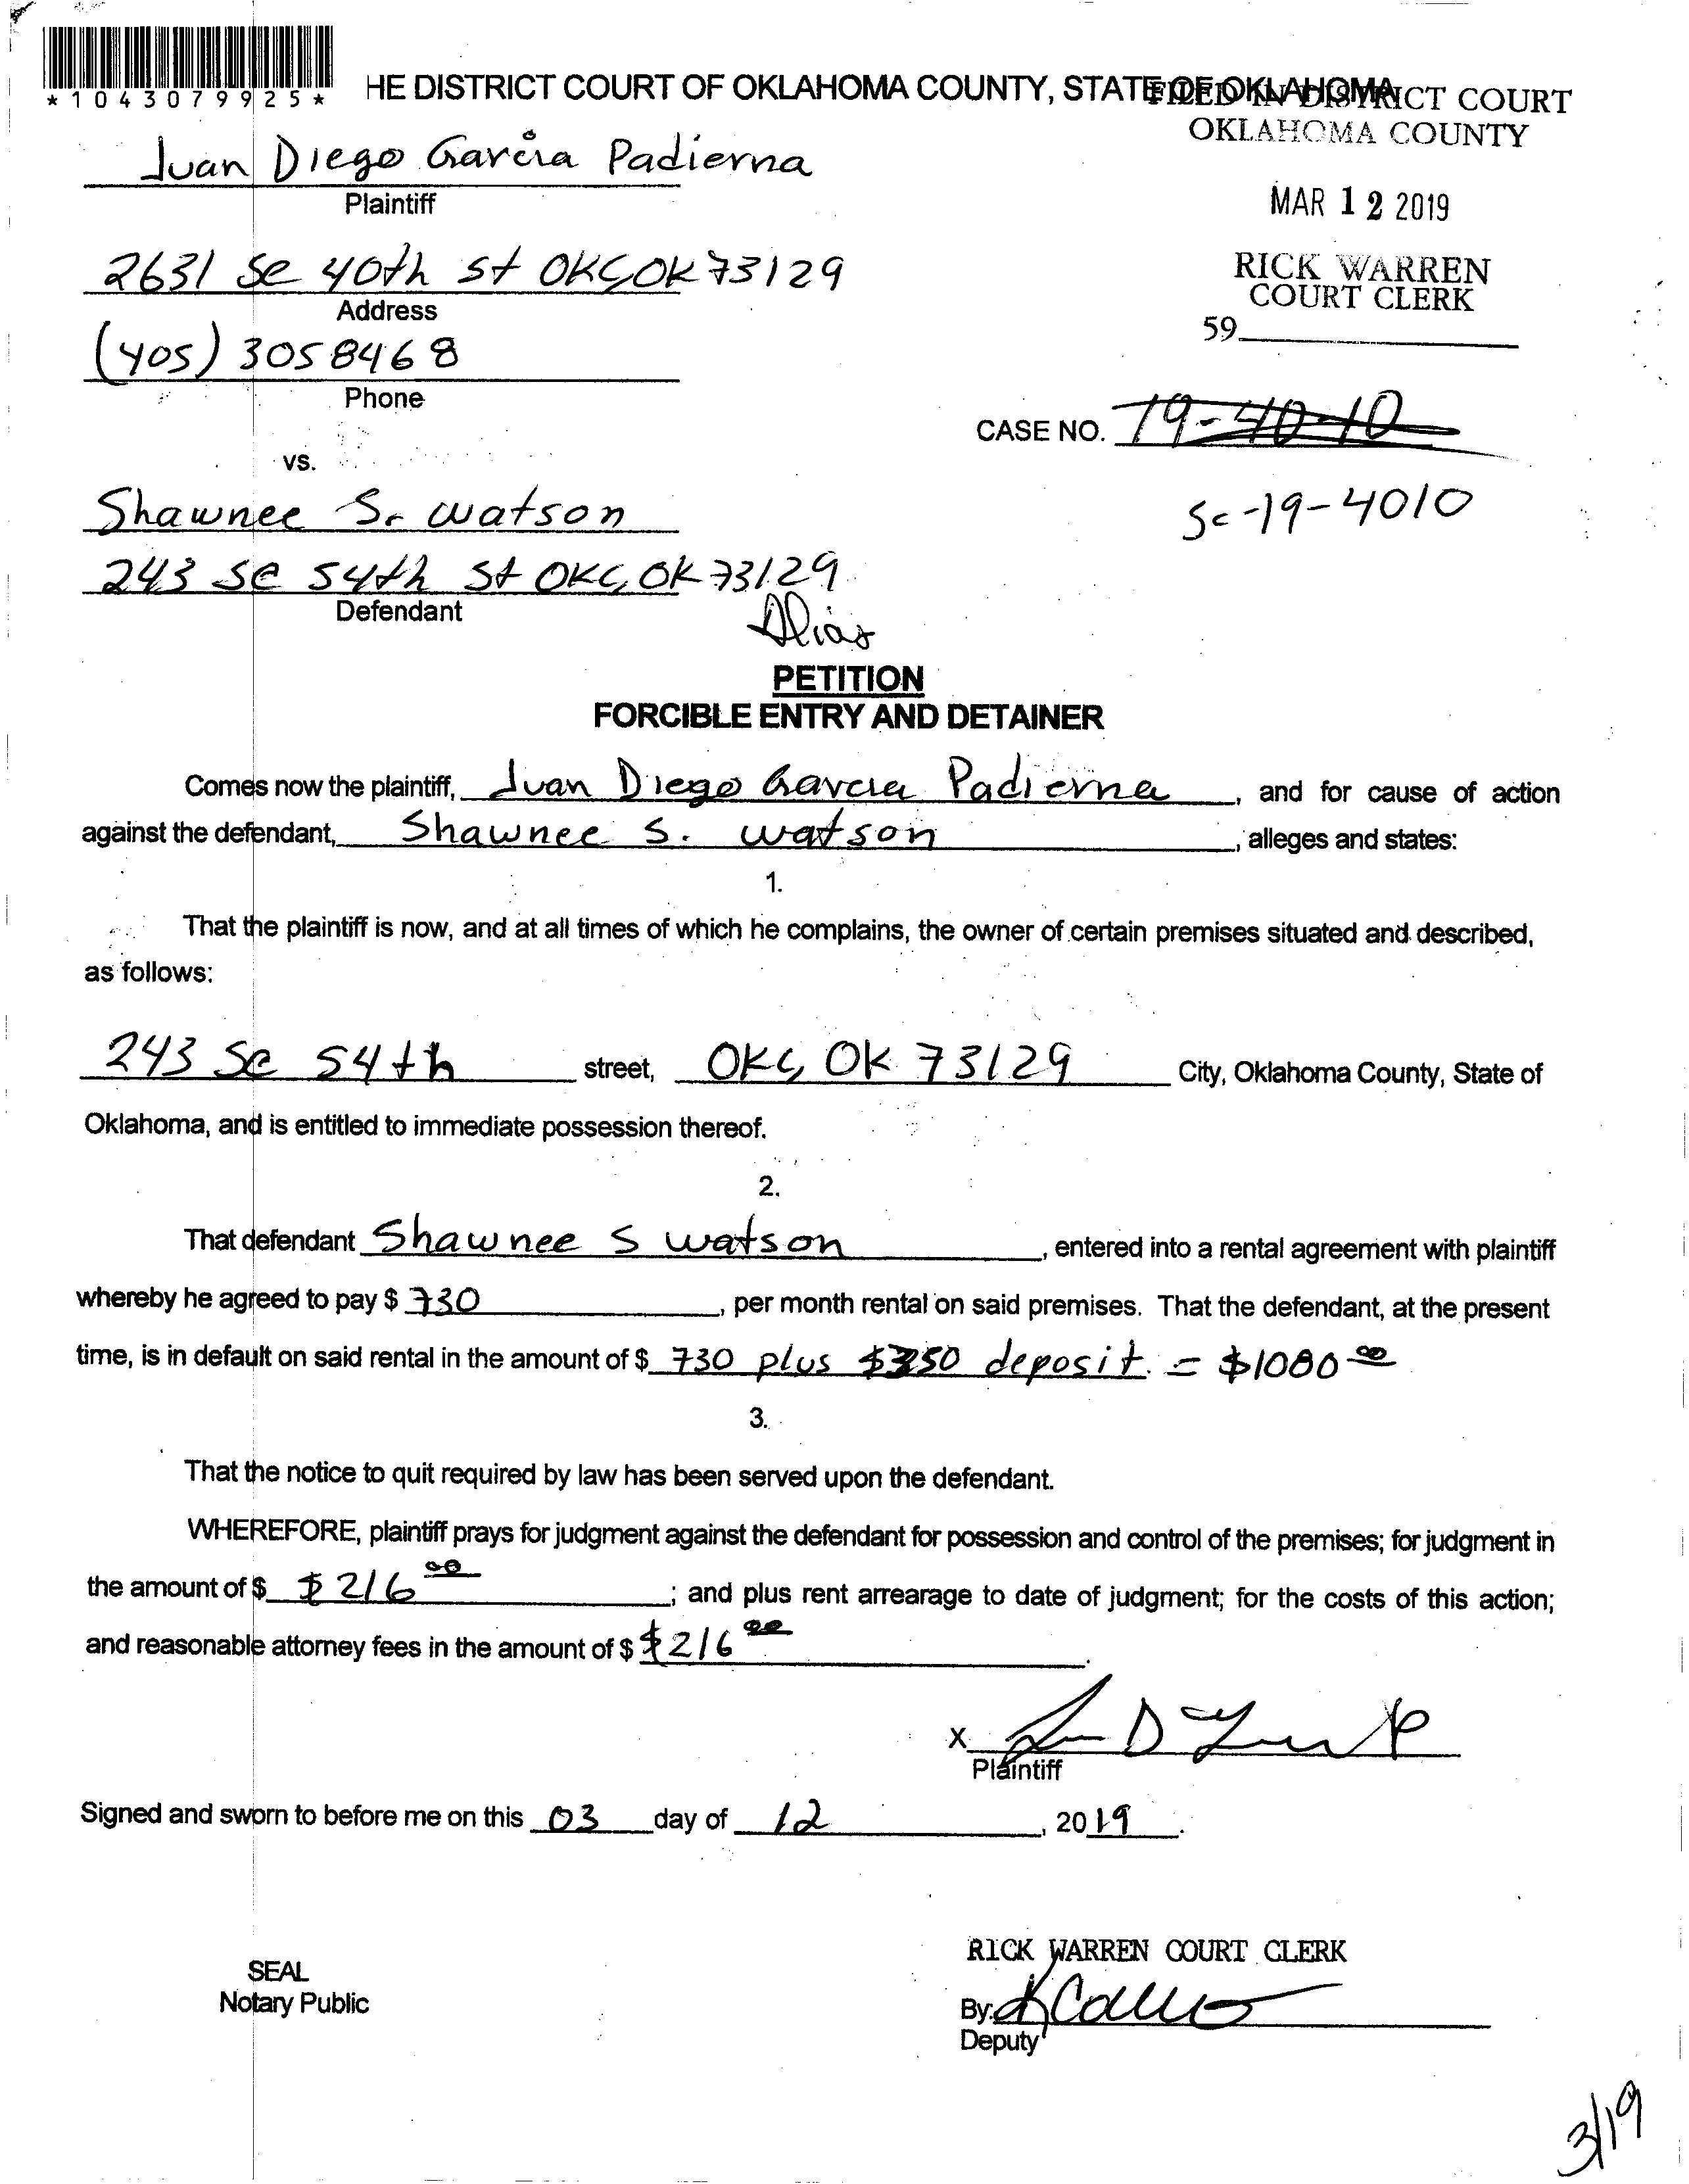 *1043079925*
HE DISTRICT COURT OF OKLAHOMA COUNTY, STATE OF OKLAHOMA
FILED IN DISTRICT COURT
OKLAHOMA COUNTY
Juan Diego Garcia Padierna
Plaintiff
MAR 12 2019
2631 Se 40th st OKC, OK 73129
Address
RICK WARREN
COURT CLERK
59
(405) 305 8468
Phone
CASE NO. 19-40-10
vs.
Shawnee S. watson
Sc-19-4010
243 se 54th st OKC, OK 73129
Defendant
Alias
PETITION
FORCIBLE ENTRY AND DETAINER
Comes now the plaintiff, Juan Diego Garcia Padierna, and for cause of action
against the defendant, Shawnee S. watson, alleges and states:
1.
That the plaintiff is now, and at all times of which he complains, the owner of certain premises situated and described,
as follows:
243 Se 54th street, OKC, OK 73129 City, Oklahoma County, State of
Oklahoma, and is entitled to immediate possession thereof.
2.
That defendant Shawnee S watson, entered into a rental agreement with plaintiff
whereby he agreed to pay $ 730, per month rental on said premises. That the defendant, at the present
time, is in default on said rental in the amount of $ 730 plus $350 deposit. = $1080 00
3.
That the notice to quit required by law has been served upon the defendant.
WHEREFORE, plaintiff prays for judgment against the defendant for possession and control of the premises; for judgment in
the amount of $ $216 00; and plus rent arrearage to date of judgment; for the costs of this action;
and reasonable attorney fees in the amount of $ $216 00.
X
Plaintiff
Signed and sworn to before me on this 03 day of 12, 2019.
RICK WARREN COURT CLERK
SEAL
Notary Public
By:
Deputy
3/19